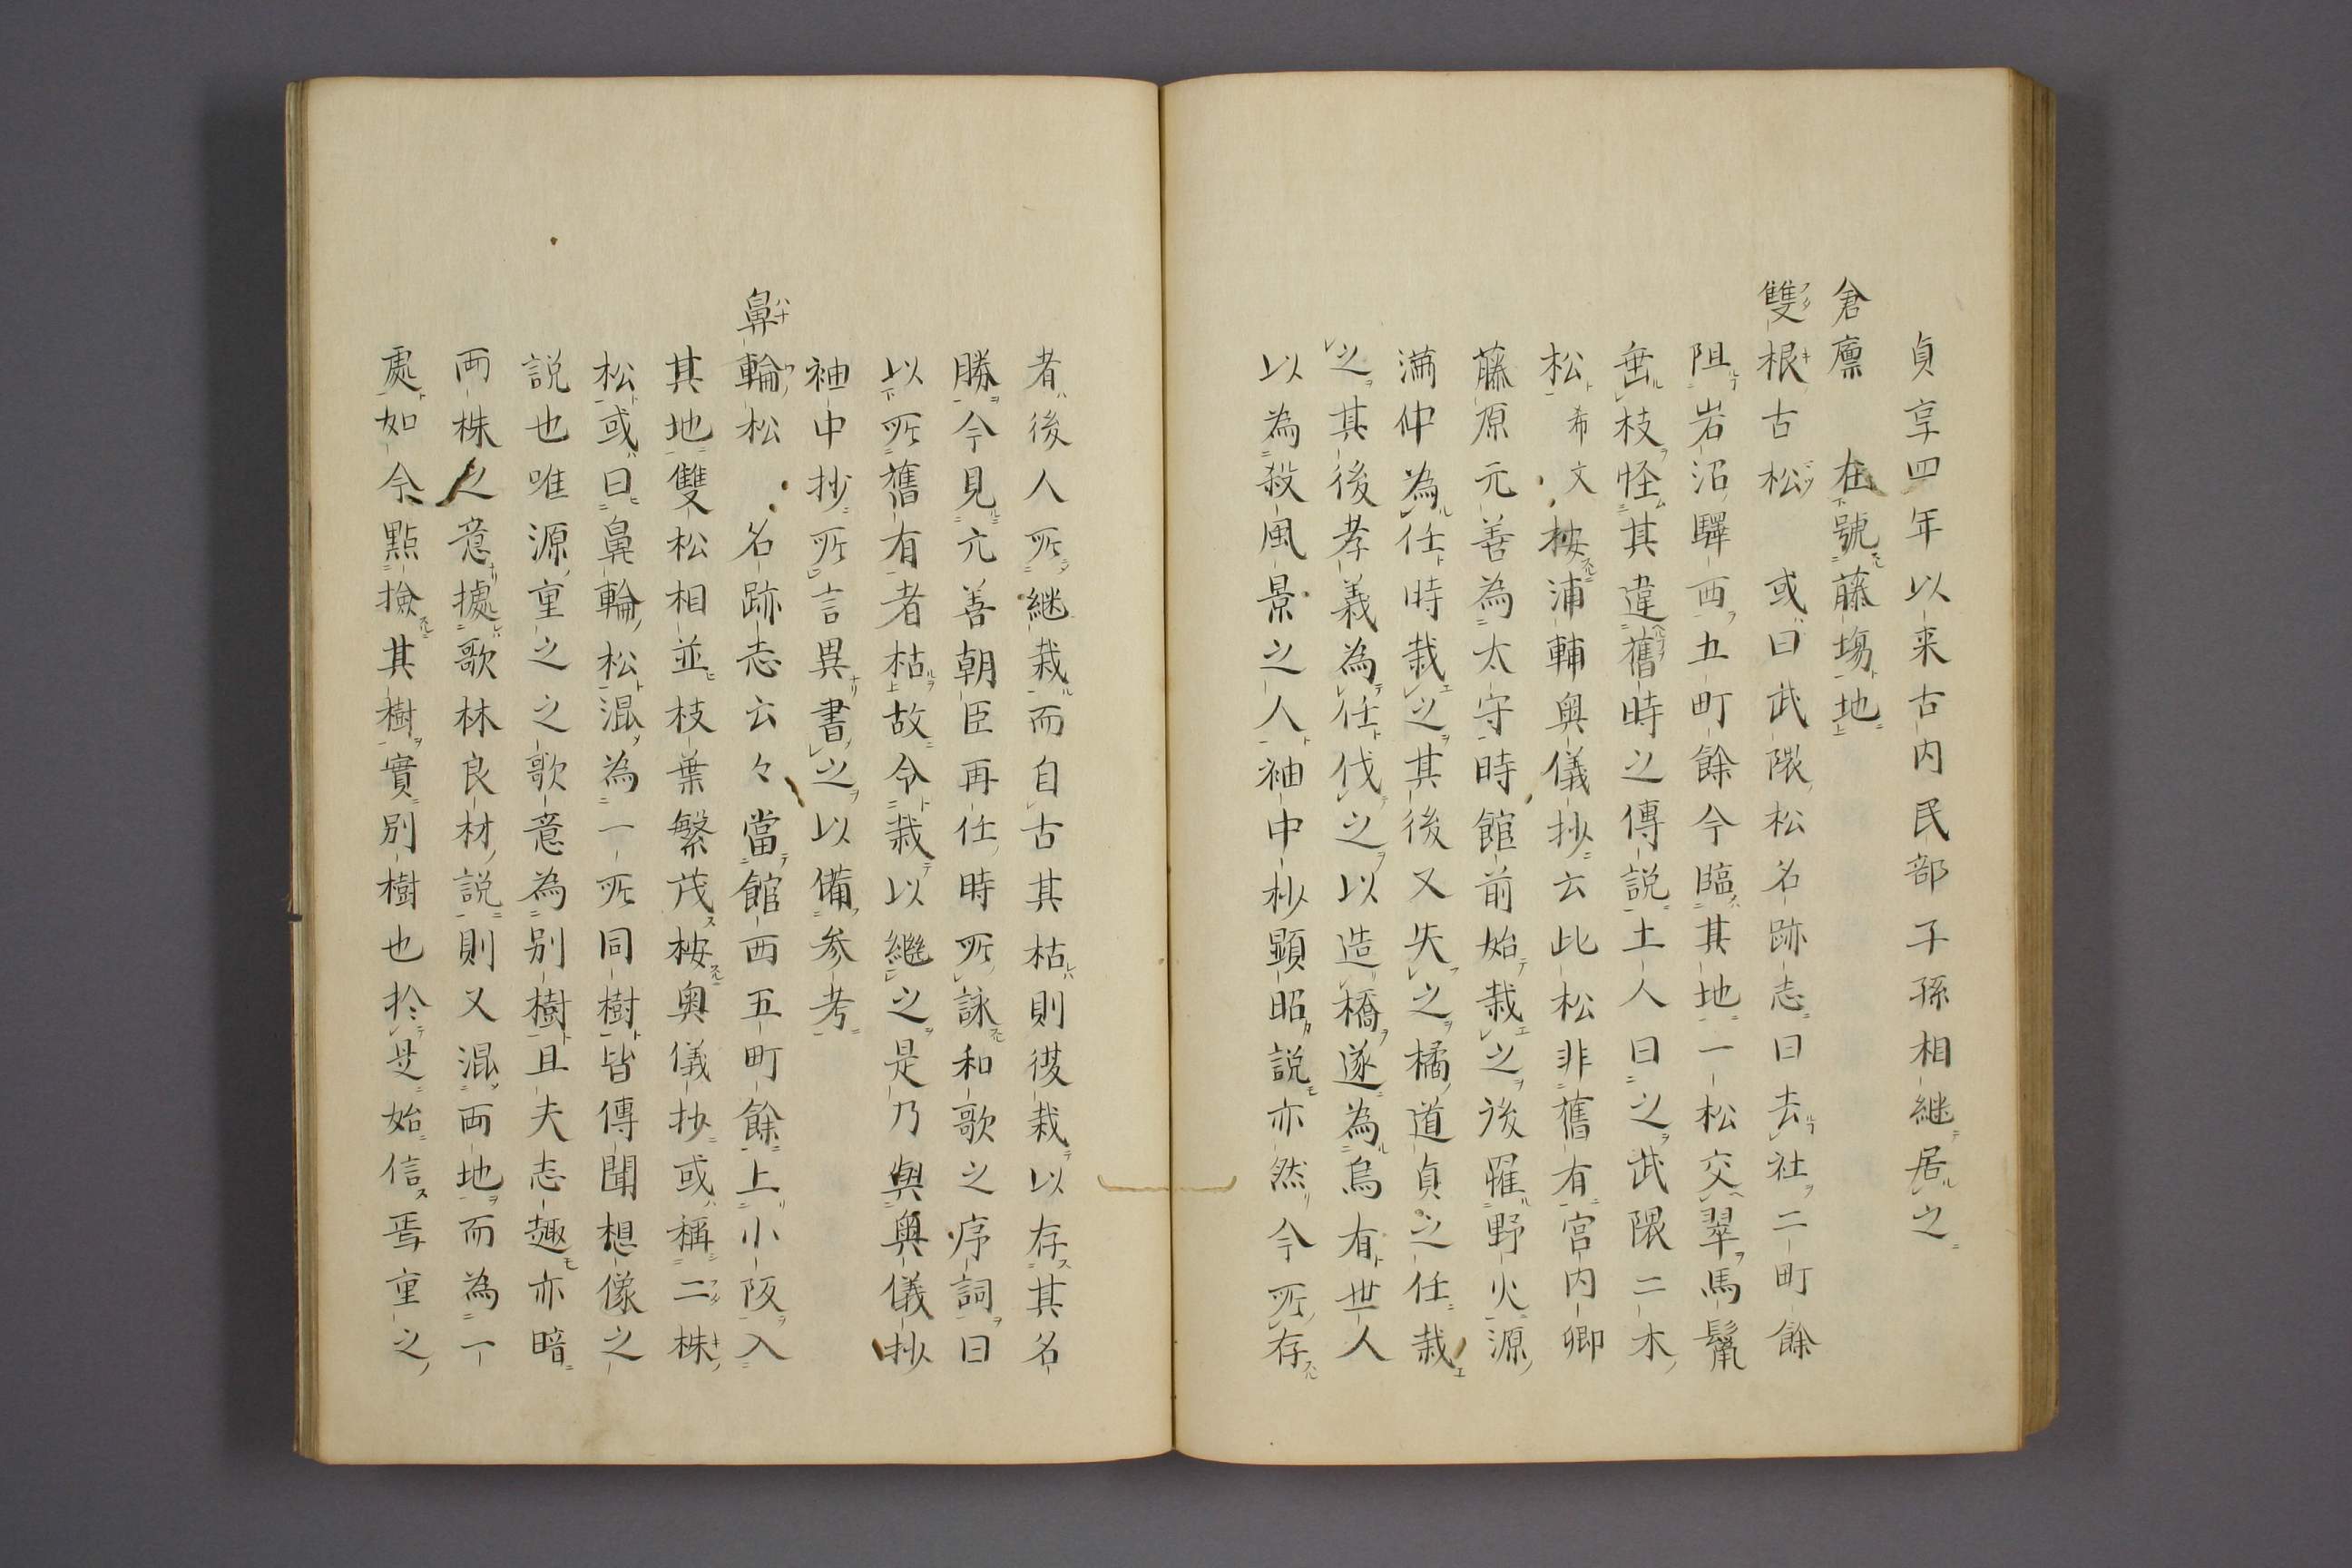 貞享四年以来古内民部子孫相継居之
倉廩　在號藤塲地
雙根古松　或曰武隈松名跡志曰去社二町餘
阻岩沼驛西五町餘今臨其地一松交翠馬鬣
垂枝怪其違舊時之傳説土人曰之武隈二木
松希文按浦輔奥儀抄云此松非舊有宮内卿
藤原元善為太守時館前始栽之後罹野火源
満仲為任時栽之其後又失之橘道貞之任栽
之其後孝義為任伐之以造橋遂為烏有世人
以為殺風景之人袖中抄顕昭説亦然今所存
者後人所継栽而自古其枯則後栽以存其名
勝今見元善朝臣再任時所詠和歌之序詞曰
以所舊有者枯故令栽以継之是乃與奥儀抄
袖中抄所言異書之以備参考
鼻輪松　名跡志云々當館西五町餘上小阪入
其地雙松相並枝葉繁茂按奥儀抄或稱二株
松或曰鼻輪松混為一所同樹皆傳聞想像之
説也唯源重之之歌意為別樹且夫志趣亦暗
両株之意據歌林良材説則又混両地而為一
處如今點撿其樹實別樹也於是始信焉重之